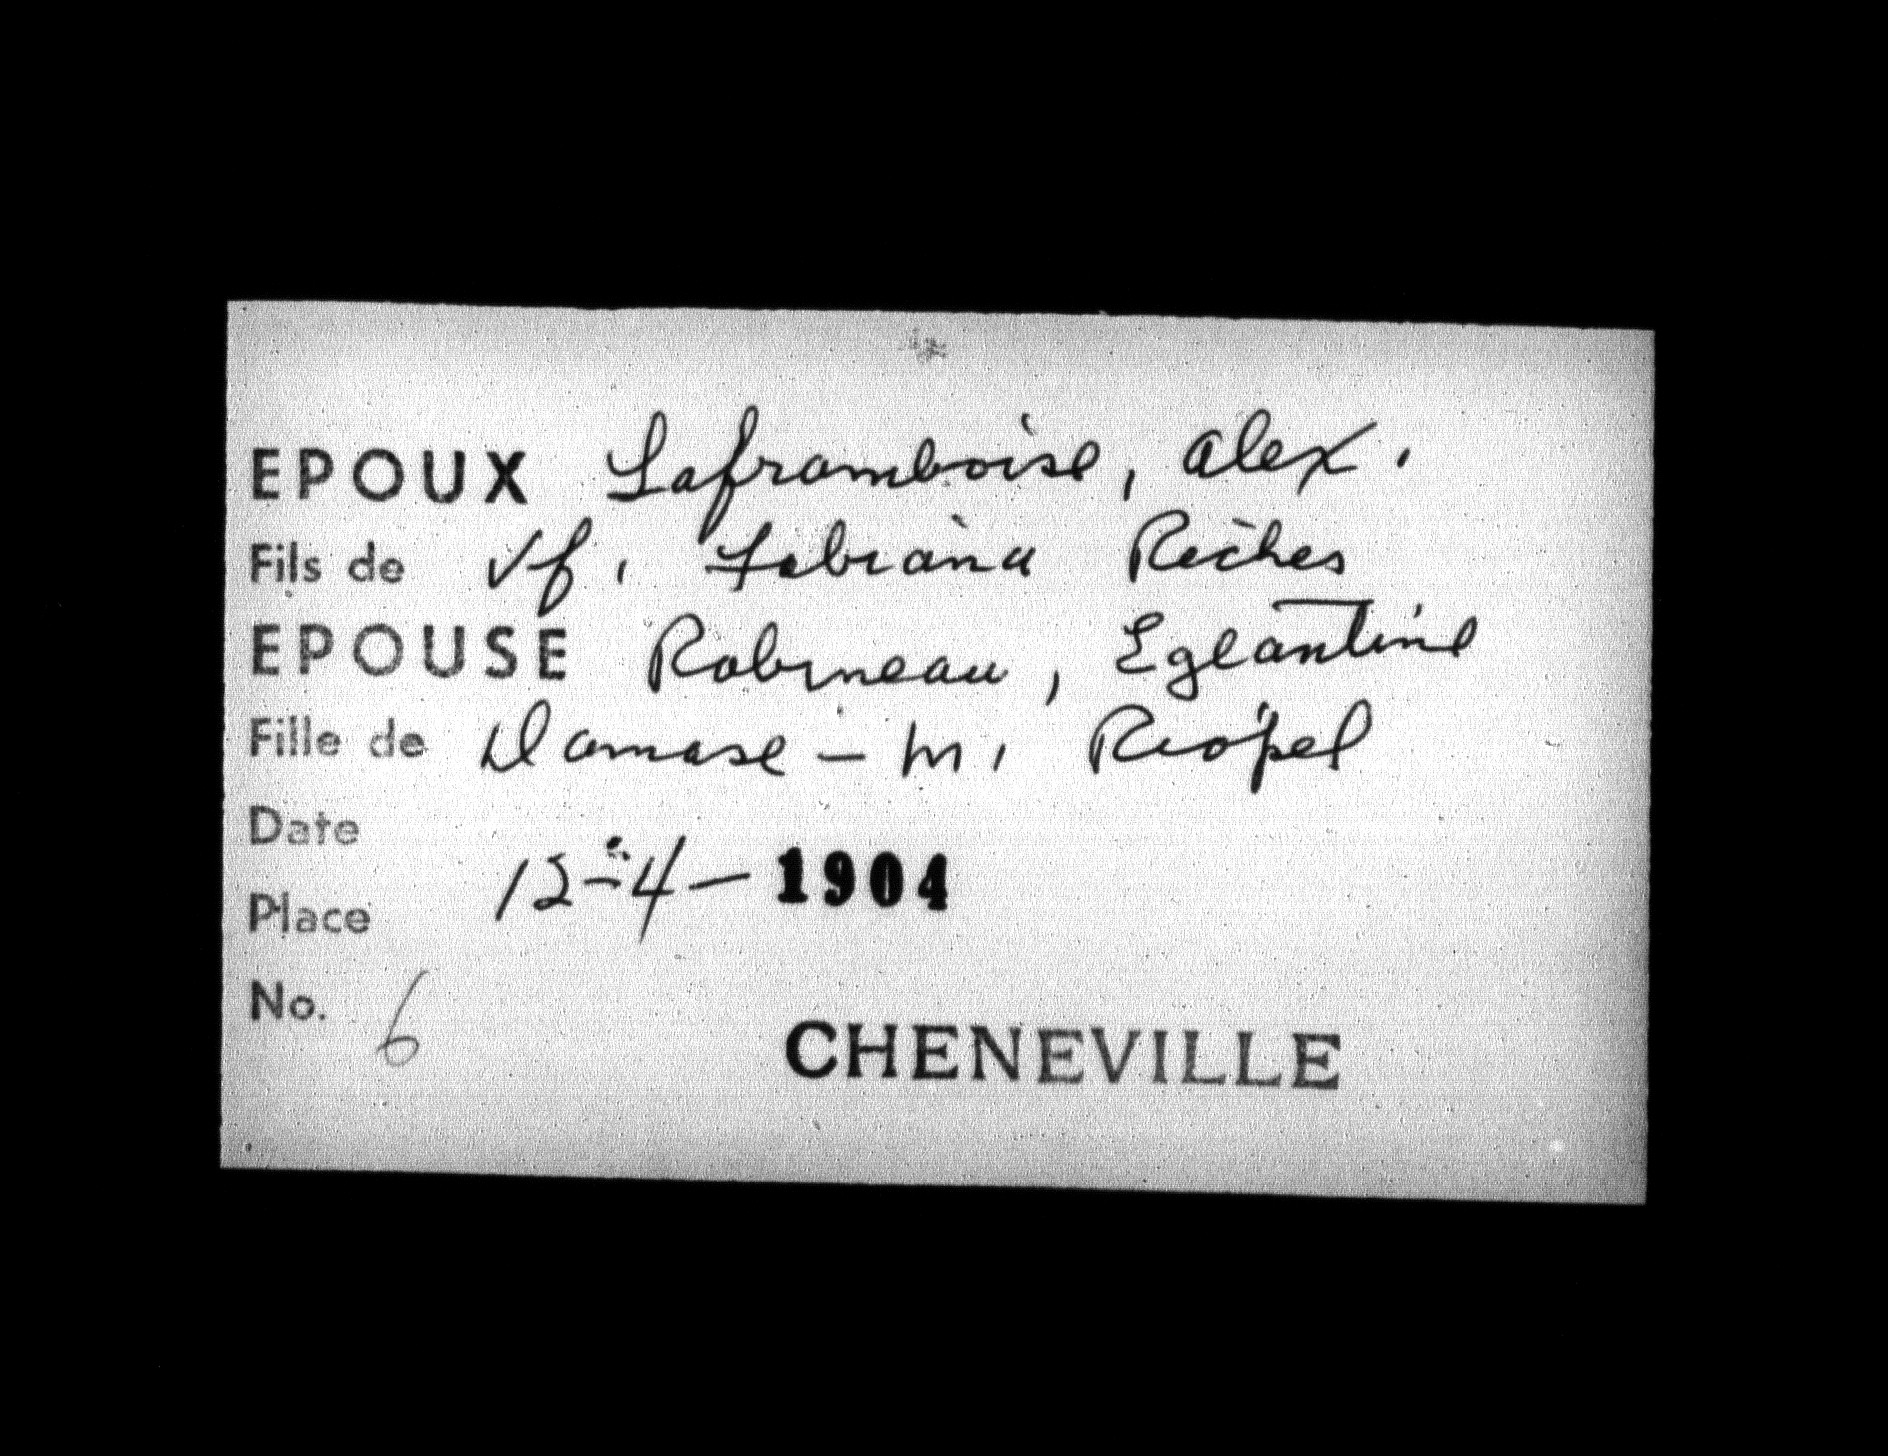 EPOUX Laframboise, Alex.
Fils de Vf. Fabiana Riches
EPOUSE Robineau, Eglantine
Fille de Damase - M. Riopel
Date
12-4-1904
Place
No. 6
CHENEVILLE